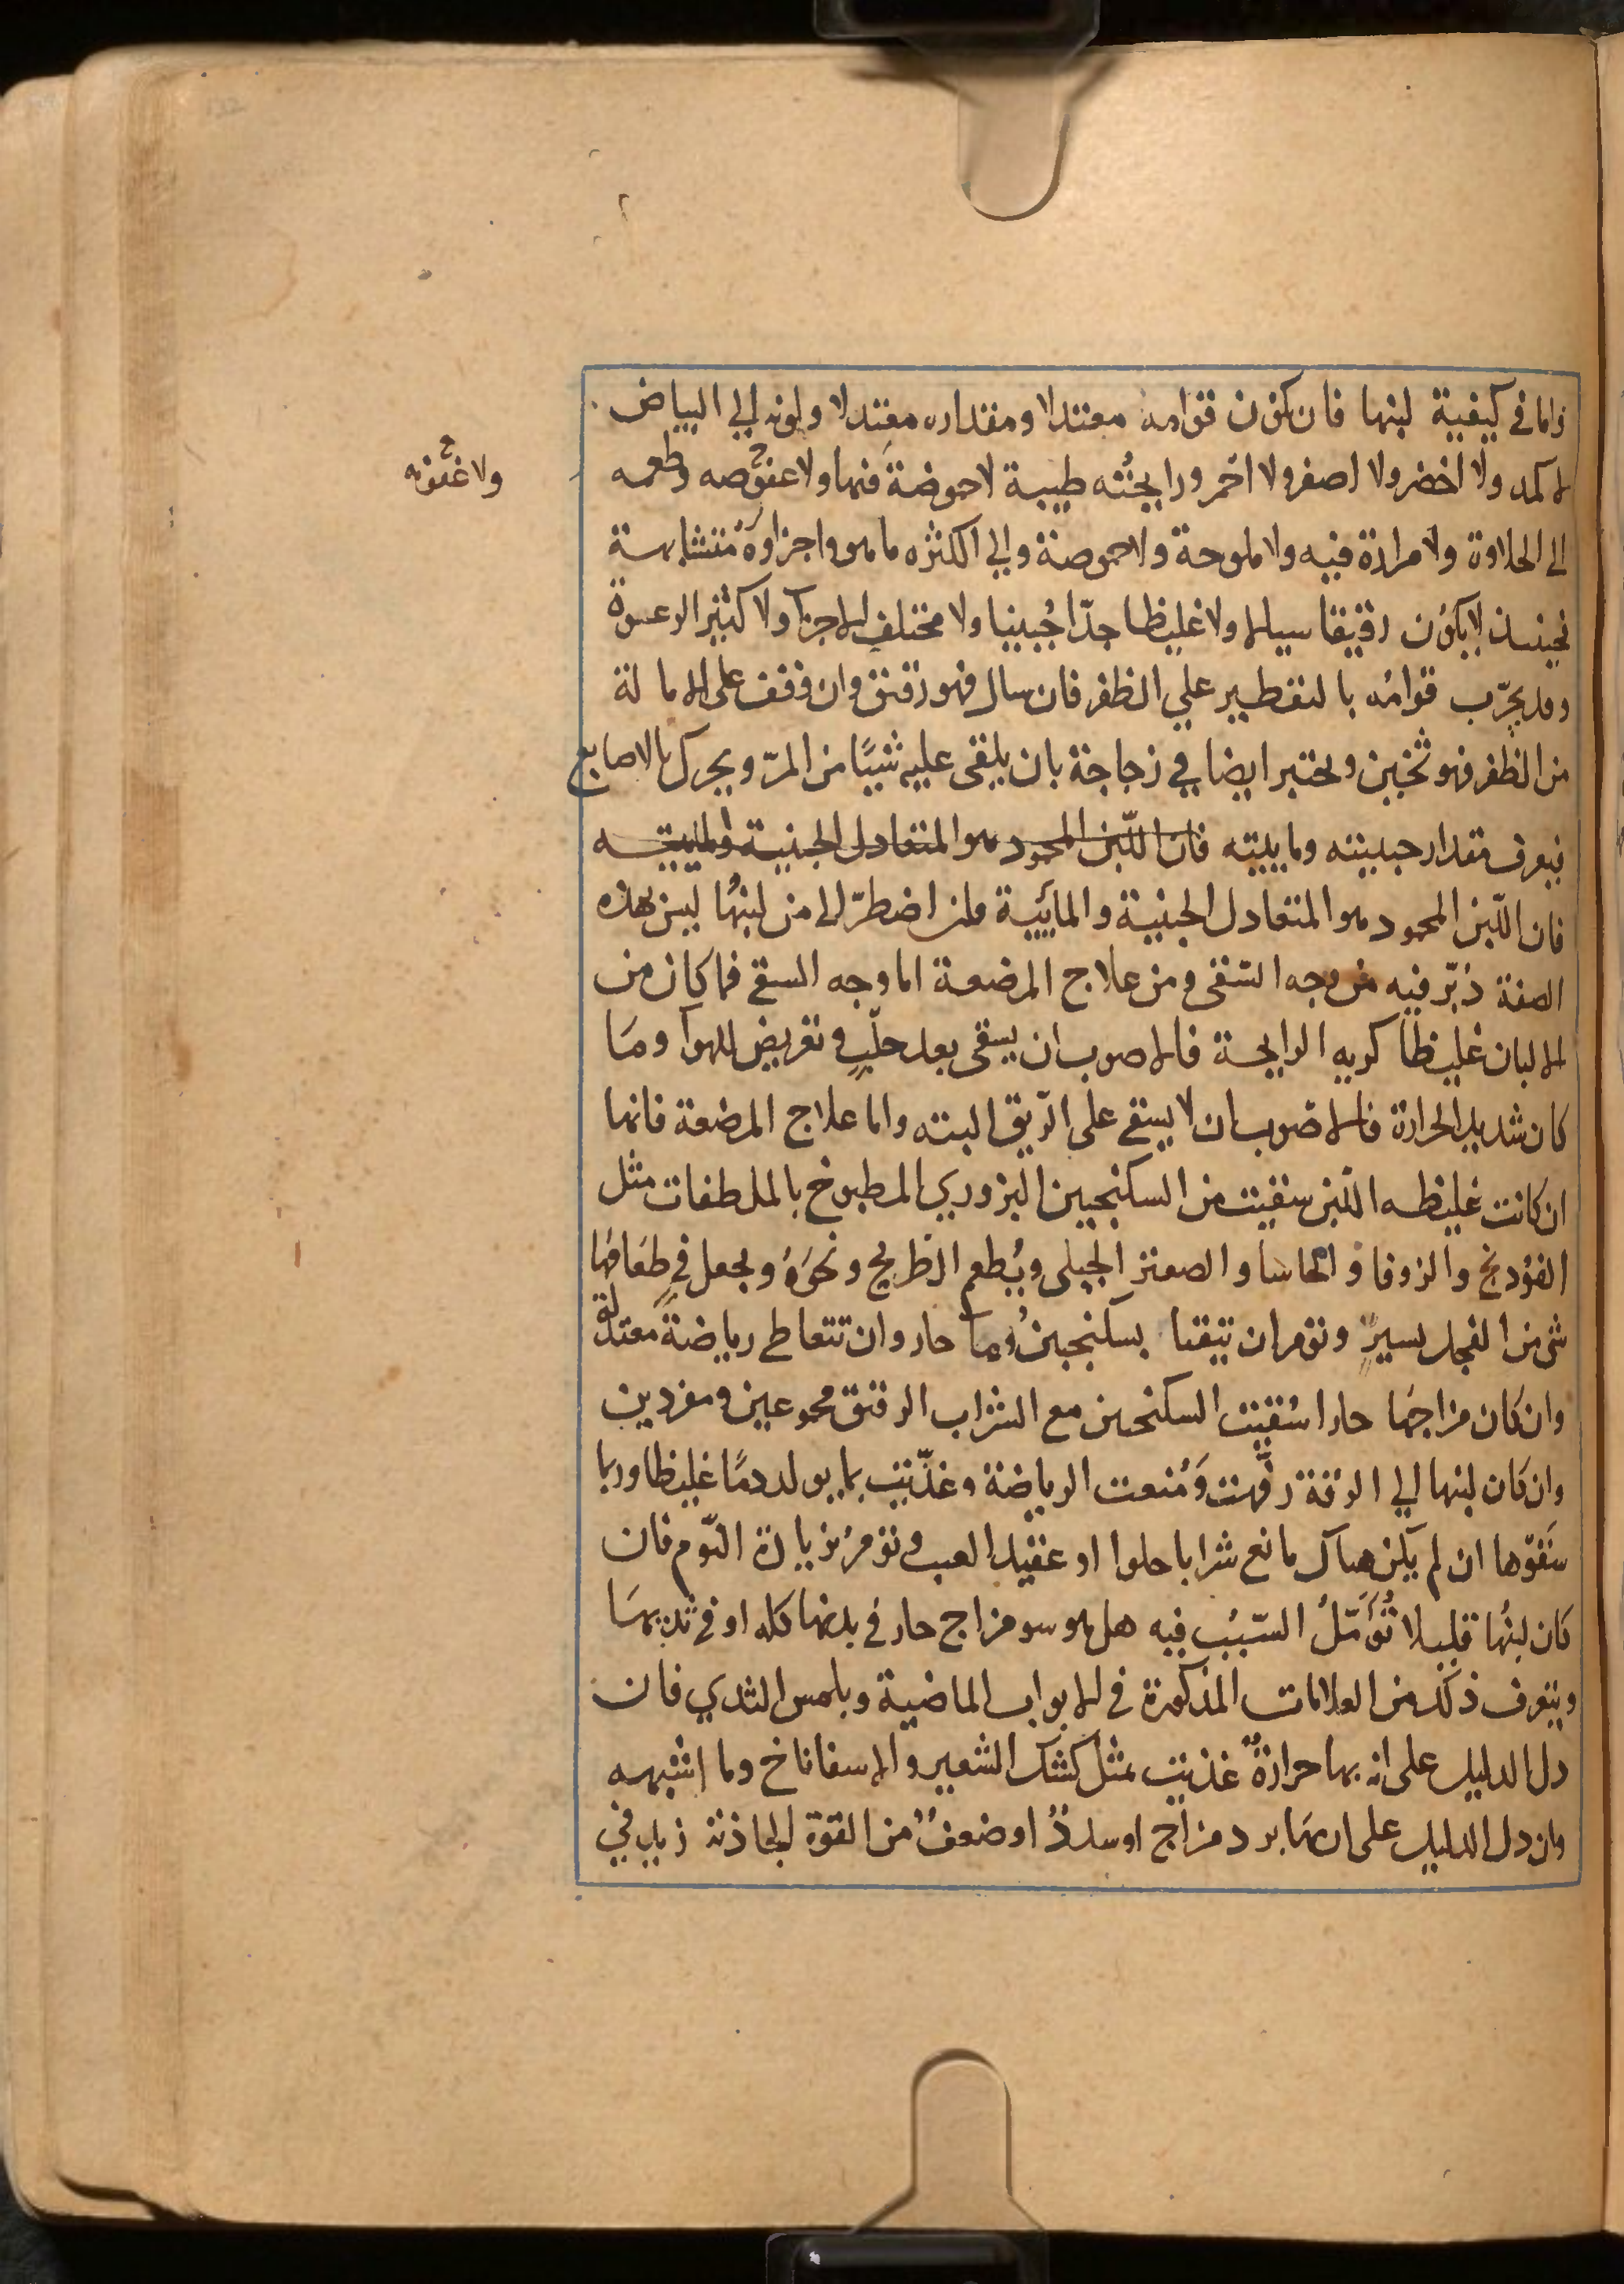 واما في كيفية لبنها فان يكون قوامه معتدلا ومقداره معتدلا ولونه الي البياض
لا كمد ولا اخضر ولا اصفر ولا احمر ورايحته طيبة لا حموضة فيها ولا عفوصه وطعمه
ولا عفونه
الى الحلاوة ولا مرارة فيه ولا ملوحة ولا حموضة والي الكثره ما هو واجزاوه متشابهة
فحينئذ لا يكون رقيقا سيالا ولا غليظا جدّا جُبنيا ولا مختلف الاجزآ ولا كثير الرغوة
وقد يجرّب قوامُه بالتقطير علي الظفر فان سال فهو رقيق وان وقف على الامالة
من الظفر فهو ثخين ويختبر ايضا في زجاجة بان يلقى عليه شيئًا من المرّ ويحرك بالاصابع
فيعرف مقدار جبنيته ومايييته فان اللّبن المحمود هو المتعادل الجبنية والماييه
فان اللّبن المحمود هو المتعادل الجبنية والمائيية فان اضطرّ الى من لبنُها ليس بهذه
الصفة دُبّر فيه من وجه السّقى ومن علاج المرضعة اما وجه السقى فما كان من
الالبان غليظا كريه الرايحة فالاصوب ان يسقى بعد حلبٍ وتعريض للهوآ وما
كان شديد الحرارة فالاصوب ان لا يسقى على الرّيق البته واما علاج المرضعة فانها
ان كانت غليظه اللّبن سقيت من السكنجبين البزوري المطبوخ بالملطفات مثل
الفوُدنج والزوفا والحاشا والصعتر الجبلى ويُطعم الطريح ونحوَهُ ويجعل في طعَامها
شى من الفجل يسيرٍ وتؤمر ان تتقيا بسكنجبين وماَ حار وان تتعاطى رياضةً معتدلة
وان كان مزاجها حارا سُقيت السكنجبين مع الشراب الرقيق مجموعين ومفردين
وان كان لبنها الي الرّقة رُفّهت وَمُنعت الرياضة وغذّيت بما يولد دمًا غليظا وربما
سَقَوّها ان لم يكن هناك مانع شرابا حلوا او عقيد العنب وتؤمر بزيادة النّوم فان
كان لبنُها قليلا تُؤُمِّلَ السّببُ فيه هل هو سو مزاج حار في بدنها كله او في ثديهَا
ويتعرف ذلك من العلامات المذكورة في الابواب الماضية وبلمس الثدي فان
دل الدليل على ان بها حرارةً غذيت بمثل كشك الشعير والاسفاناخ وما اشبهه
وان دل الدليل على ان بهَا برد مزاج او سددٌ او ضعفٌ من القوة الجاذبة زيد في